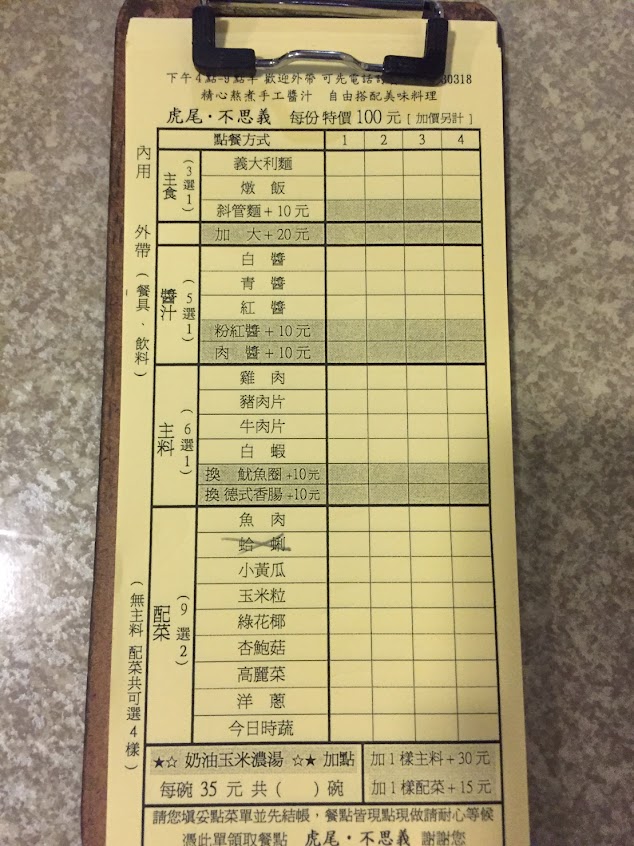 下午4點-9點半 歡迎外帶 可先電話 30318
精心熬煮手工醬汁 自由搭配美味料理
虎尾・不思義 每份特價100元 [ 加價另計 ]
內用 外帶 (餐具、飲料)
(無主料 配菜共可選4樣)
點餐方式 1 2 3 4
主食 (3選1)
義大利麵
燉 飯
斜管麵+10元
加 大+20元
醬汁 (5選1)
白 醬
青 醬
紅 醬
粉紅醬+10元
肉 醬+10元
主料 (6選1)
雞 肉
豬肉片
牛肉片
白 蝦
換 魷魚圈+10元
換 德式香腸+10元
配菜 (9選2)
魚 肉
蛤 蜊
小黃瓜
玉米粒
綠花椰
杏鮑菇
高麗菜
洋 蔥
今日時蔬
★☆ 奶油玉米濃湯 ☆★ 加點
每碗 35 元 共 ( ) 碗
加1樣主料+30元
加1樣配菜+15元
請您填妥點菜單並先結帳，餐點皆現點現做請耐心等候
憑此單領取餐點 虎尾・不思義 謝謝您